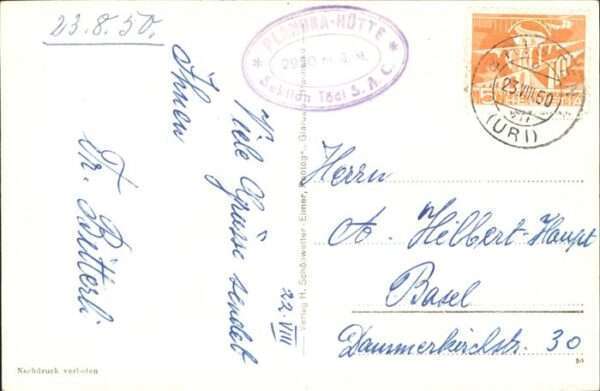 23.8.50.
PLANURA-HÜTTE
2920 m.ü.M.
Sektion Tödi S.A.C.
23.VIII.50
(URI)
5 HELVETIA
Viele Grüsse sendet
Ihnen
Fr. Bitterli
22.VIII
Verlag H. Schönwetter-Elmer, Photogr., Glarus
Herrn
A. Hilbert-Haupt
Basel
Dammerkirchstr. 30
Nachdruck verboten